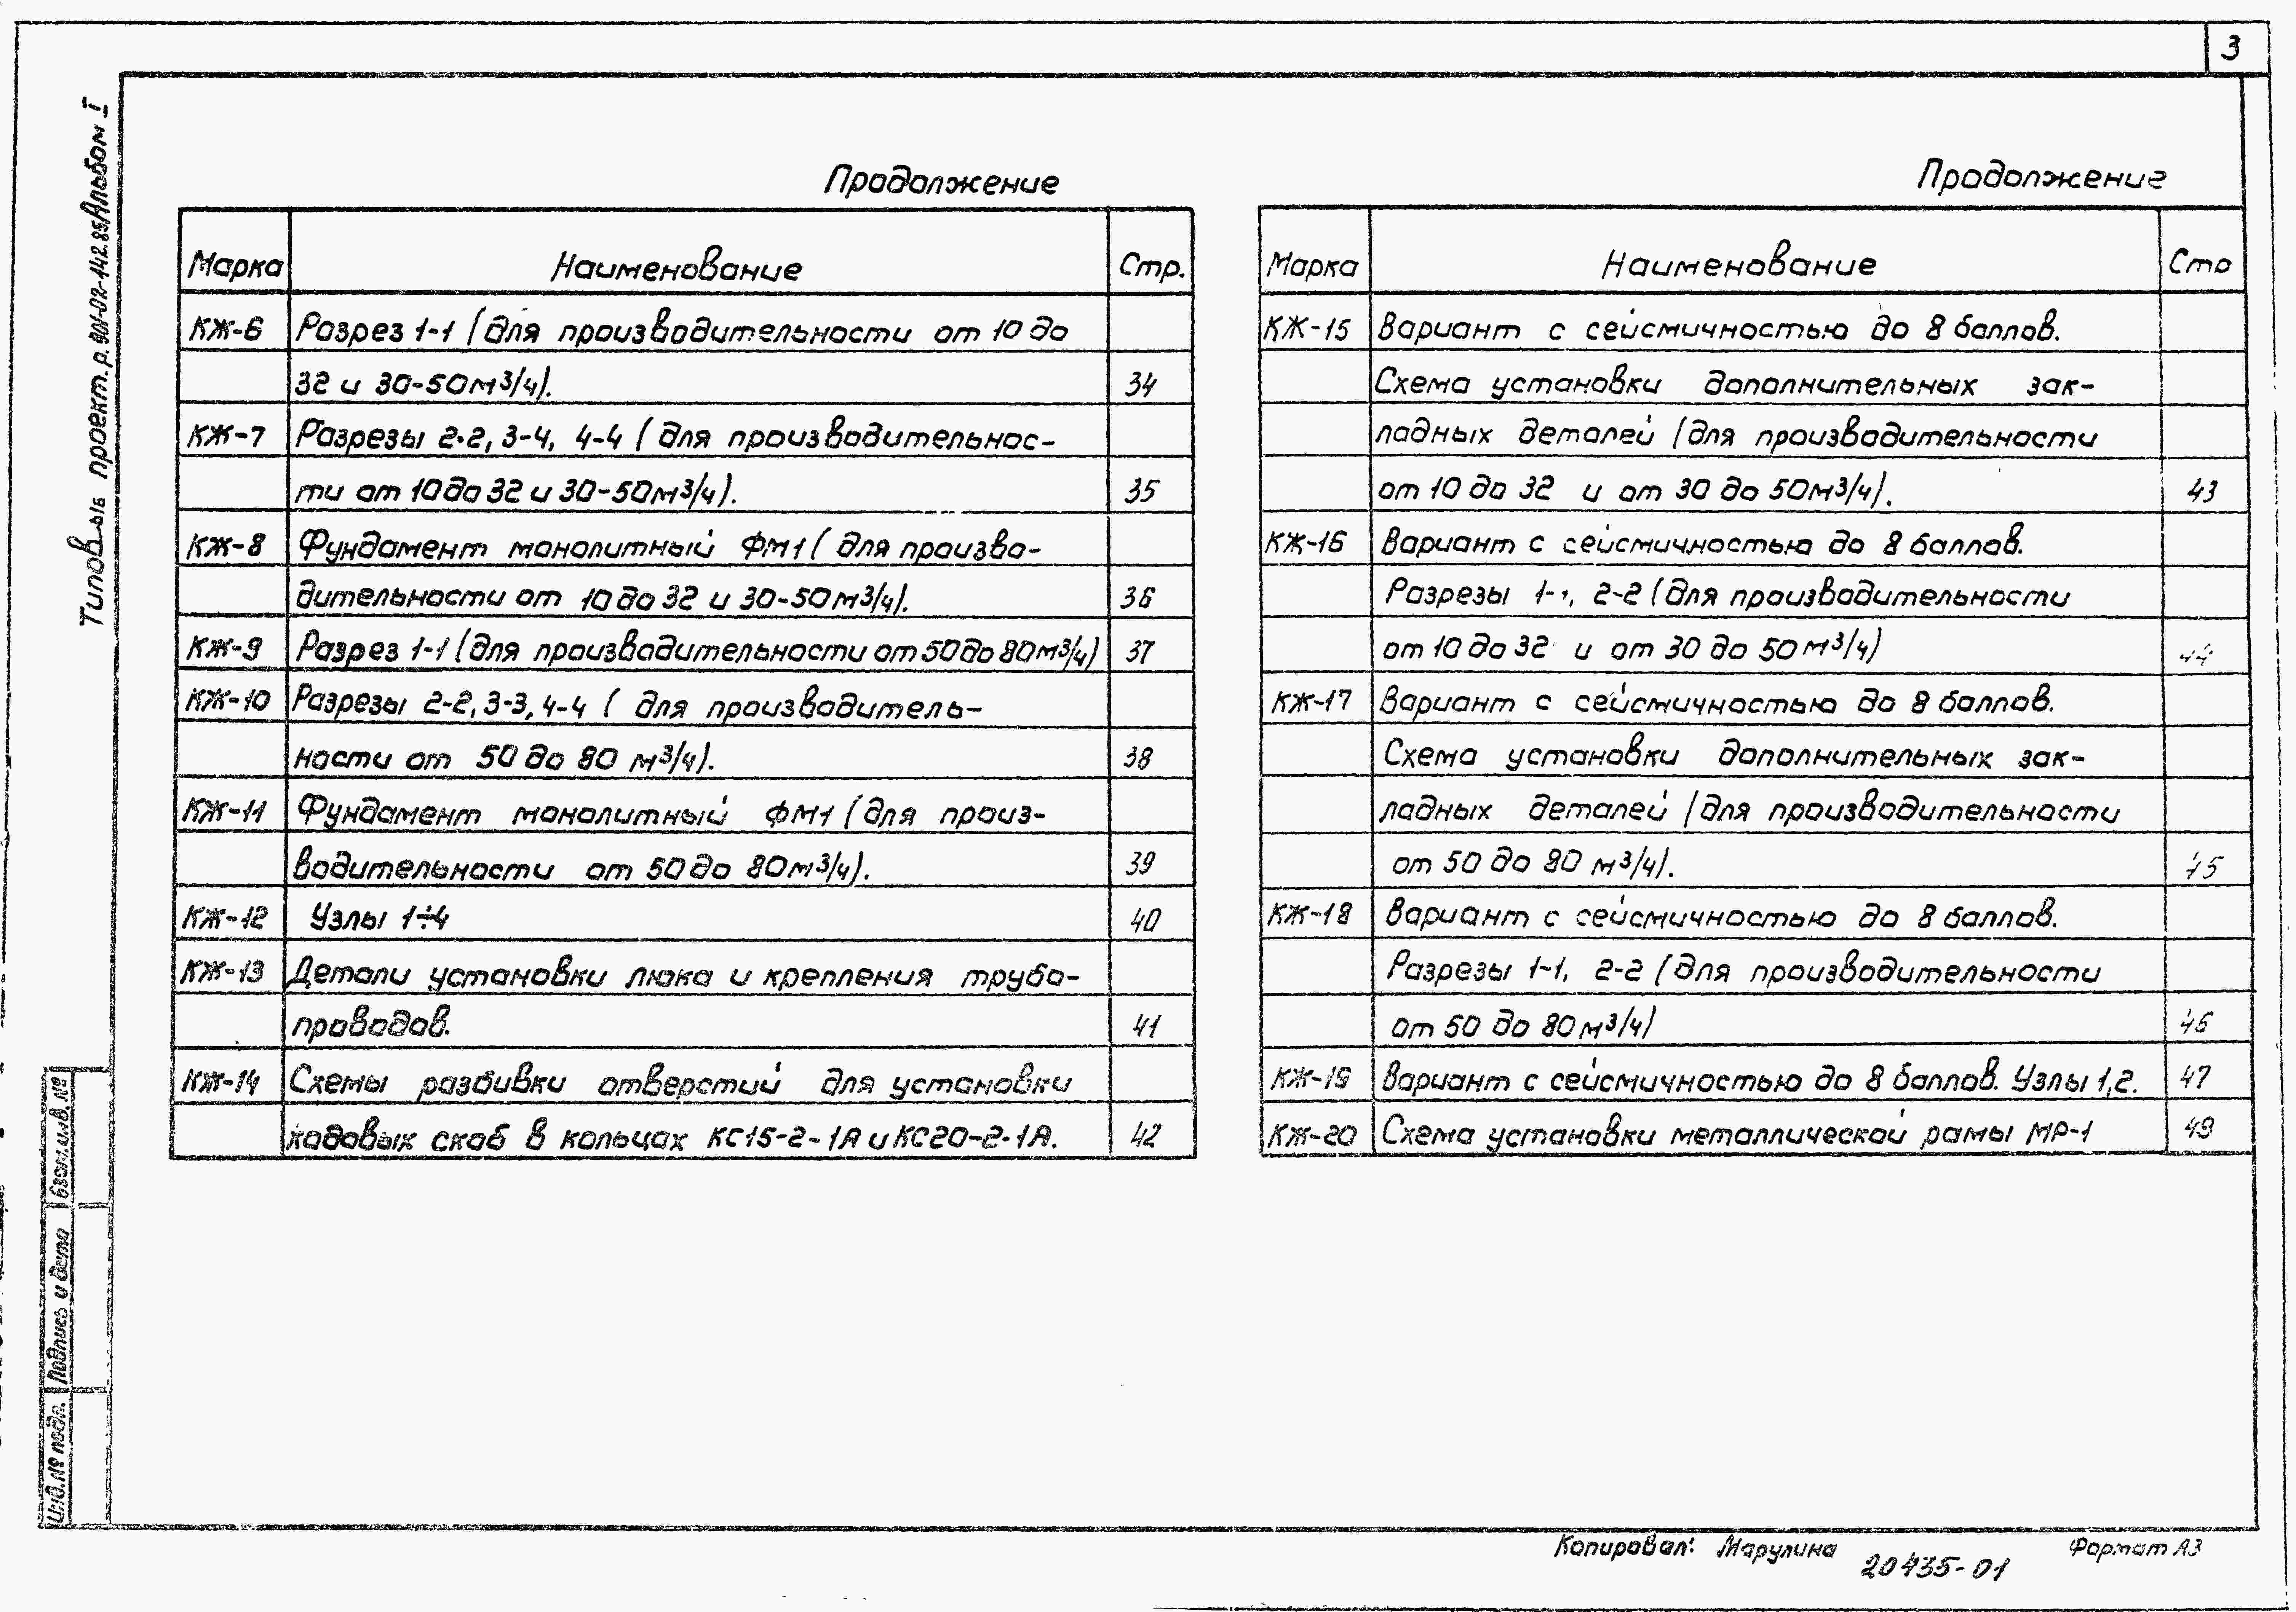 3
Типовые проект. р. 901-02-142.85 Альбом I
Продолжение
Марка Наименование Стр.
КЖ-6 Разрез 1-1 (для производительности от 10 до
32 и 30-50 м³/ч). 34
КЖ-7 Разрезы 2-2, 3-4, 4-4 (для производительнос-
ти от 10 до 32 и 30-50 м³/ч). 35
КЖ-8 Фундамент монолитный ФМ1 (для произво-
дительности от 10 до 32 и 30-50 м³/ч). 36
КЖ-9 Разрез 1-1 (для производительности от 50 до 80 м³/ч) 37
КЖ-10 Разрезы 2-2, 3-3, 4-4 (для производитель-
ности от 50 до 80 м³/ч). 38
КЖ-11 Фундамент монолитный ФМ1 (для произ-
водительности от 50 до 80 м³/ч). 39
КЖ-12 Узлы 1÷4 40
КЖ-13 Детали установки люка и крепления трубо-
проводов. 41
КЖ-14 Схемы разбивки отверстий для установки
ходовых скоб в кольцах КС15-2-1А и КС20-2-1А. 42
Продолжение
Марка Наименование Стр
КЖ-15 Вариант с сейсмичностью до 8 баллов.
Схема установки дополнительных зак-
ладных деталей (для производительности
от 10 до 32 и от 30 до 50 м³/ч). 43
КЖ-16 Вариант с сейсмичностью до 8 баллов.
Разрезы 1-1, 2-2 (для производительности
от 10 до 32 и от 30 до 50 м³/ч) 44
КЖ-17 Вариант с сейсмичностью до 8 баллов.
Схема установки дополнительных зак-
ладных деталей (для производительности
от 50 до 80 м³/ч). 45
КЖ-18 Вариант с сейсмичностью до 8 баллов.
Разрезы 1-1, 2-2 (для производительности
от 50 до 80 м³/ч) 46
КЖ-19 Вариант с сейсмичностью до 8 баллов. Узлы 1,2. 47
КЖ-20 Схема установки металлической рамы МР-1 49
Инв. № подл. Подпись и дата Взам. инв. №
Копировал: Марулина Формат А3
20435-01